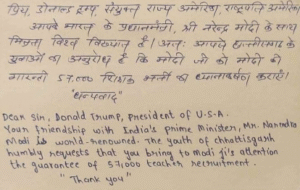 प्रिय डोनाल्ड ट्रम्प संयुक्त राज्य अमेरिका, राष्ट्रपति अमेरिका
आपके भारत के प्रधानमंत्री, श्री नरेन्द्र मोदी के साथ
मित्रता विश्व विख्यात है। अतः आपसे छत्तीसगढ़ के
युवाओं का अनुरोध है कि मोदी जी को मोदी की
गारन्टी 57,000 शिक्षक भर्ती का ध्यानाकर्षण कराएं।
"धन्यवाद"
Dear Sir, Donald Trump, President of U.S.A.
Your friendship with India's prime Minister, Mr. Narendra
Modi is world-renowned. The youth of chhattisgarh
humbly requests that you bring to Modi ji's attention
the guarantee of 57,000 teacher recruitment.
"Thank you"